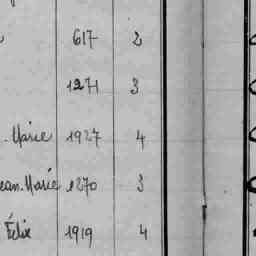 617 2
1271 3
Marie 1927 4
ean-Marie 1270 3
Félix 1919 4